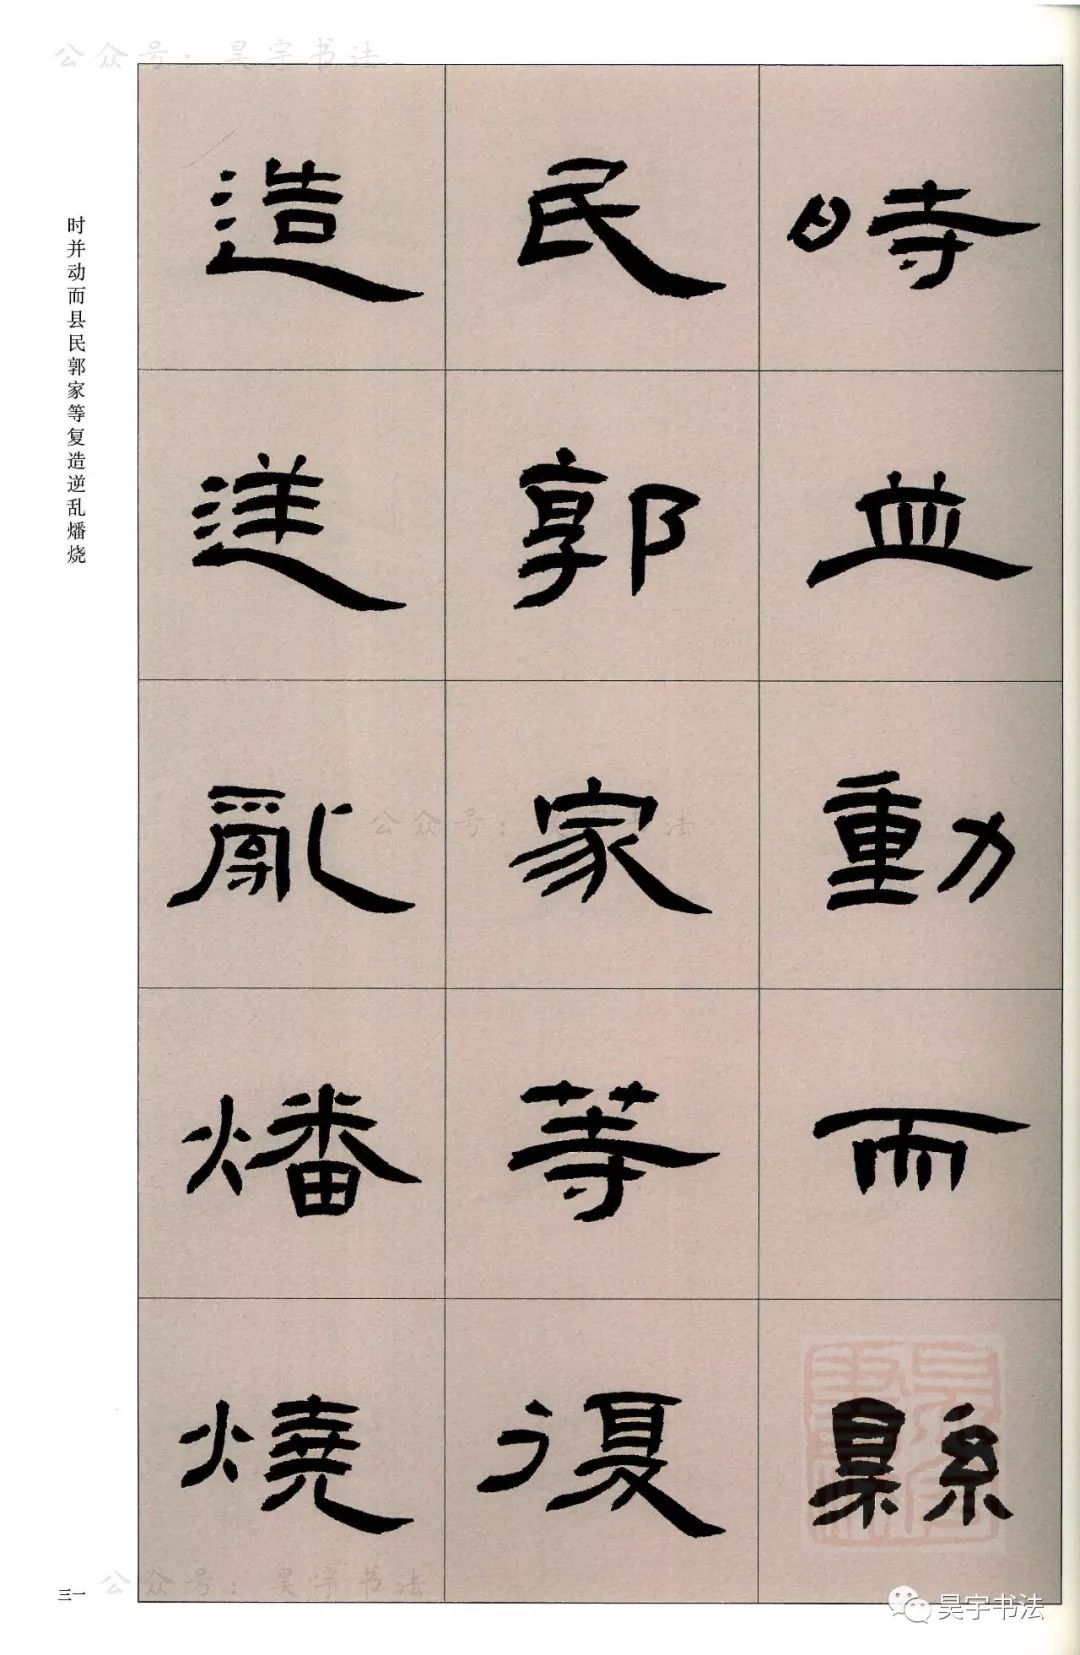 公众号：昊宇书法
時並動而縣
民郭家等復
造逆亂燔燒
时并动而县民郭家等复造逆乱燔烧
公众号：昊宇书法
三一
公众号：昊宇书法
昊宇书法